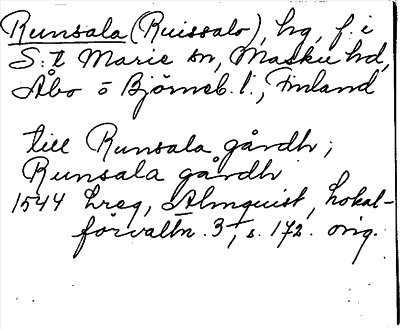 Runsala (Ruissalo), hg, f. i
S:t Marie sn, Masku hd,
Åbo o Björneb. l., Finland
till Runsala gårdh;
Runsala gårdh
1544 hreg, Almquist, Lokal-
förvaltn. 3, s. 172. orig.